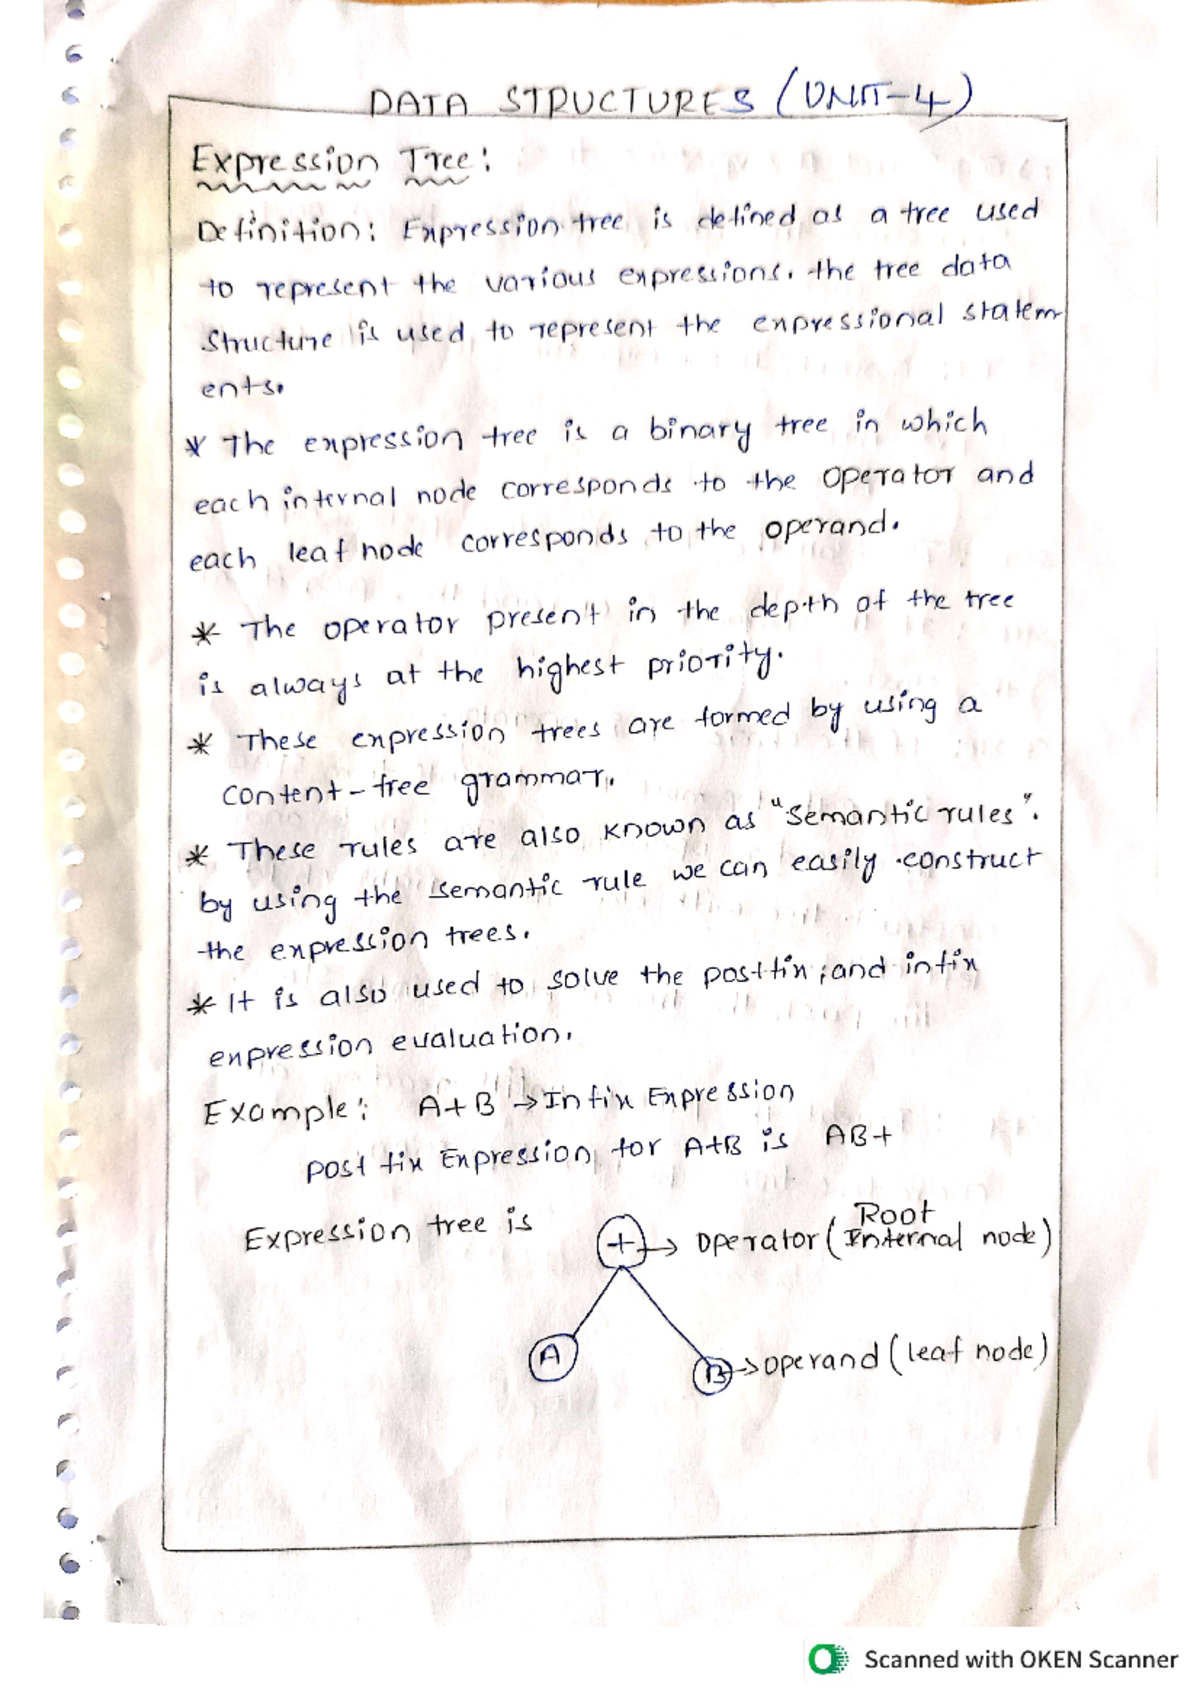 DATA STRUCTURES (UNIT-4)
Expression Tree:
Definition: Expression tree is defined as a tree used
to represent the various expressions. the tree data
structure is used to represent the expressional statem
ents.
* The expression tree is a binary tree in which
each internal node corresponds to the operator and
each leaf node corresponds to the operand.
* The operator present in the depth of the tree
is always at the highest priority.
* These expression trees are formed by using a
content-free grammar.
* These rules are also known as "semantic rules".
by using the semantic rule we can easily construct
the expression trees.
* It is also used to solve the postfix, and infix
expression evaluation.
Example: A+B → Infix Expression
post fix Expression for A+B is AB+
Expression tree is
Root
+ → operator (Internal node)
A
B → operand (leaf node)
Scanned with OKEN Scanner